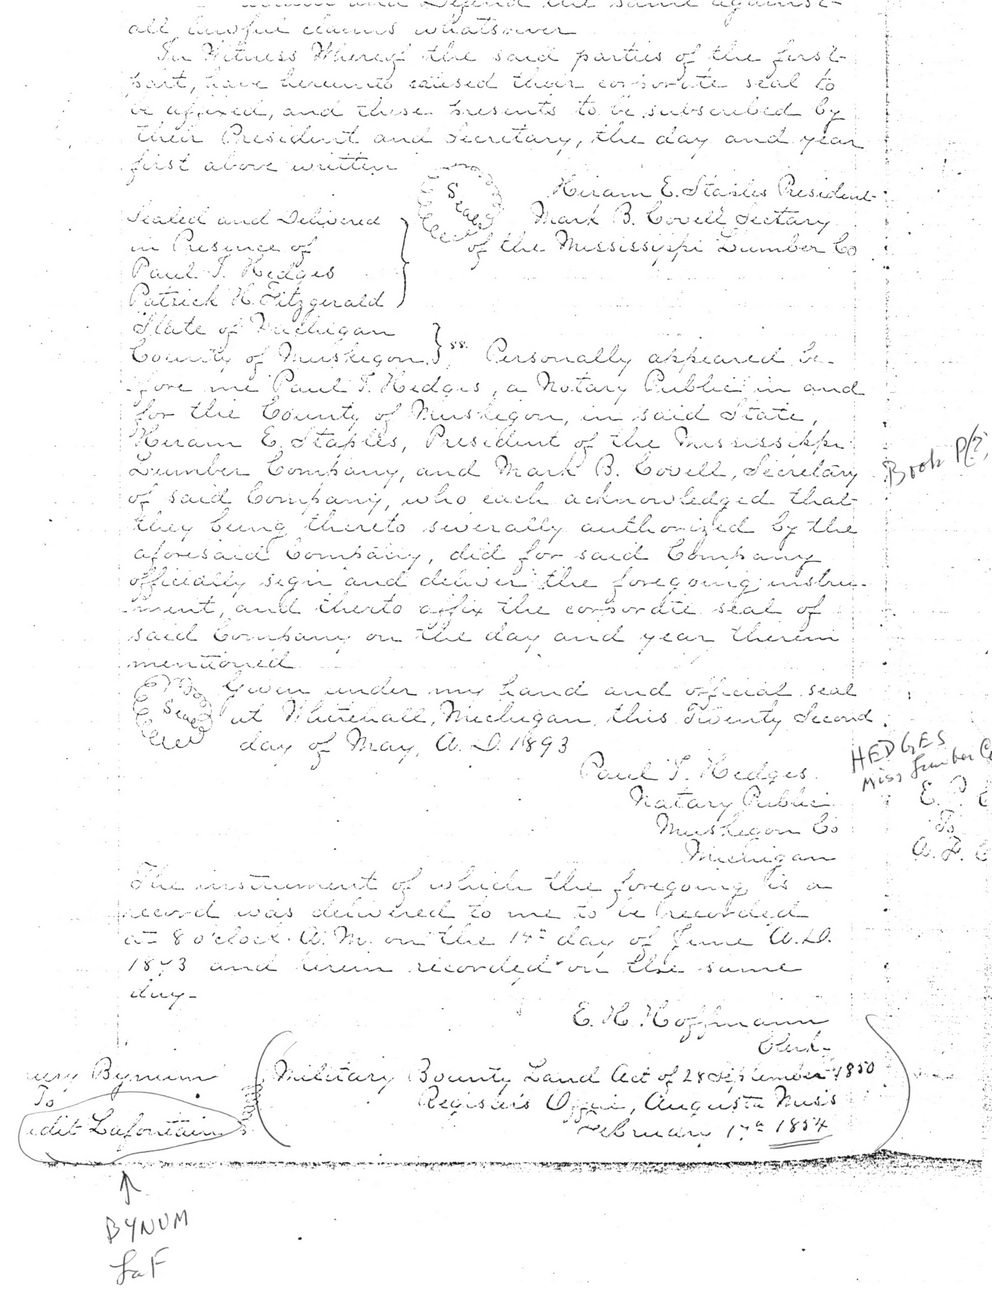 and Defend the same against
all lawful claims whatsoever
In Witness Whereof the said parties of the first
part, have hereunto caused their corporate seal to
be affixed, and these presents to be subscribed by
their President and Secretary, the day and year
first above written
Seal
Hiram E. Staples President
Mark B. Covell Sectary
of the Mississippi Lumber Co
Sealed and Delivered
in Presence of
Paul T. Hedges
Patrick H. Fitzgerald
State of Michigan
County of Muskegon } ss. Personally appeared be-
fore me Paul T. Hedges, a Notary Public in and
for the County of Muskegon, in said State,
Hiram E. Staples, President of the Mississippi
Lumber Company, and Mark B. Covell, Secretary
of said Company, who each acknowledged that
they being thereto severally authorized by the
aforesaid Company, did for said Company
officially segin and deliver the foregoing instru-
ment, and therto affix the corporate seal of
said Company on the day and year therein
mentioned
Seal
Given under my hand and official seal
at Whitehall, Michigan, this Twenty Second
day of May, A.D. 1893
Paul T. Hedges
Notary Public
Muskegon Co
Michigan
Book P(?)
HEDGES
Miss Lumber Co
E. P.
To
A. F.
The instrument of which the foregoing is a
record was delivered to me to be recorded
at 8 o'clock A.M. on the 14th day of June A.D.
1893 and herein recorded on the same
day-
E. H. Hoffmann
Clerk
Bynum
To
Lafontain
Military Bounty Land Act of 28 September 1850
Register's Office, Augusta Miss
February 17th 1854
BYNUM
LaF